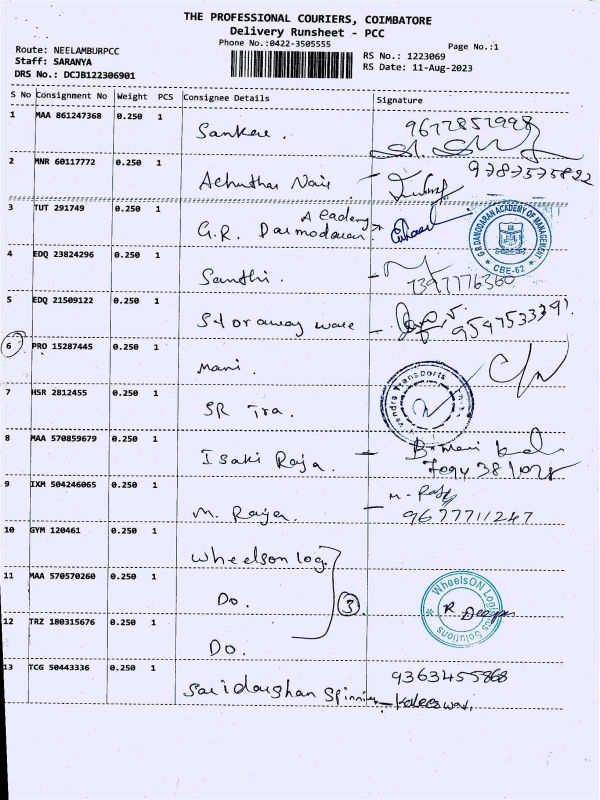 THE PROFESSIONAL COURIERS, COIMBATORE
Delivery Runsheet - PCC
Phone No.:0422-3505555
Page No.:1
Route: NEELAMBURPCC
Staff: SARANYA
DRS No.: DCJB122306901
RS No.: 1223069
RS Date: 11-Aug-2023
S No Consignment No Weight PCS Consignee Details Signature
1 MAA 861247368 0.250 1 Sankar.
2 MNR 60117772 0.250 1 Achuthan Nair 9787575822
3 TUT 291749 0.250 1 G.R. Darmodaran Academy
G R DAMODARAN ACADEMY OF MANAGEMENT
* CBE-62 *
4 EDQ 23824296 0.250 1 Santhi. 7397776360
5 EDQ 21509122 0.250 1 Storaway ware
6 PRO 15287445 0.250 1 Mani.
7 HSR 2812455 0.250 1 SR Tra.
8 MAA 570859679 0.250 1 Isaki Raja.
9 IXM 504246065 0.250 1 M. Raja. 9677711247
10 GYM 120461 0.250 1 Wheelson log.
11 MAA 570570260 0.250 1 Do. 3
WheelsON Logistics Solutions
12 TRZ 180315676 0.250 1 Do.
13 TCG 50443336 0.250 1 Saridarshan Spinning 9363455868